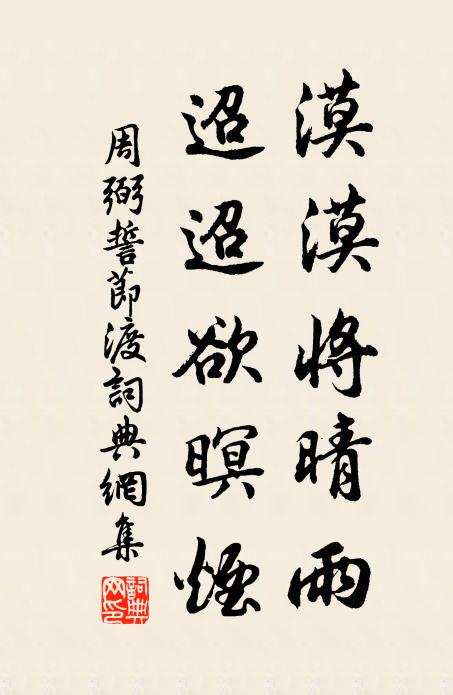 漠漠將晴雨
迢迢欲暝煙
周弼誓節渡詞典網集
詞典网印